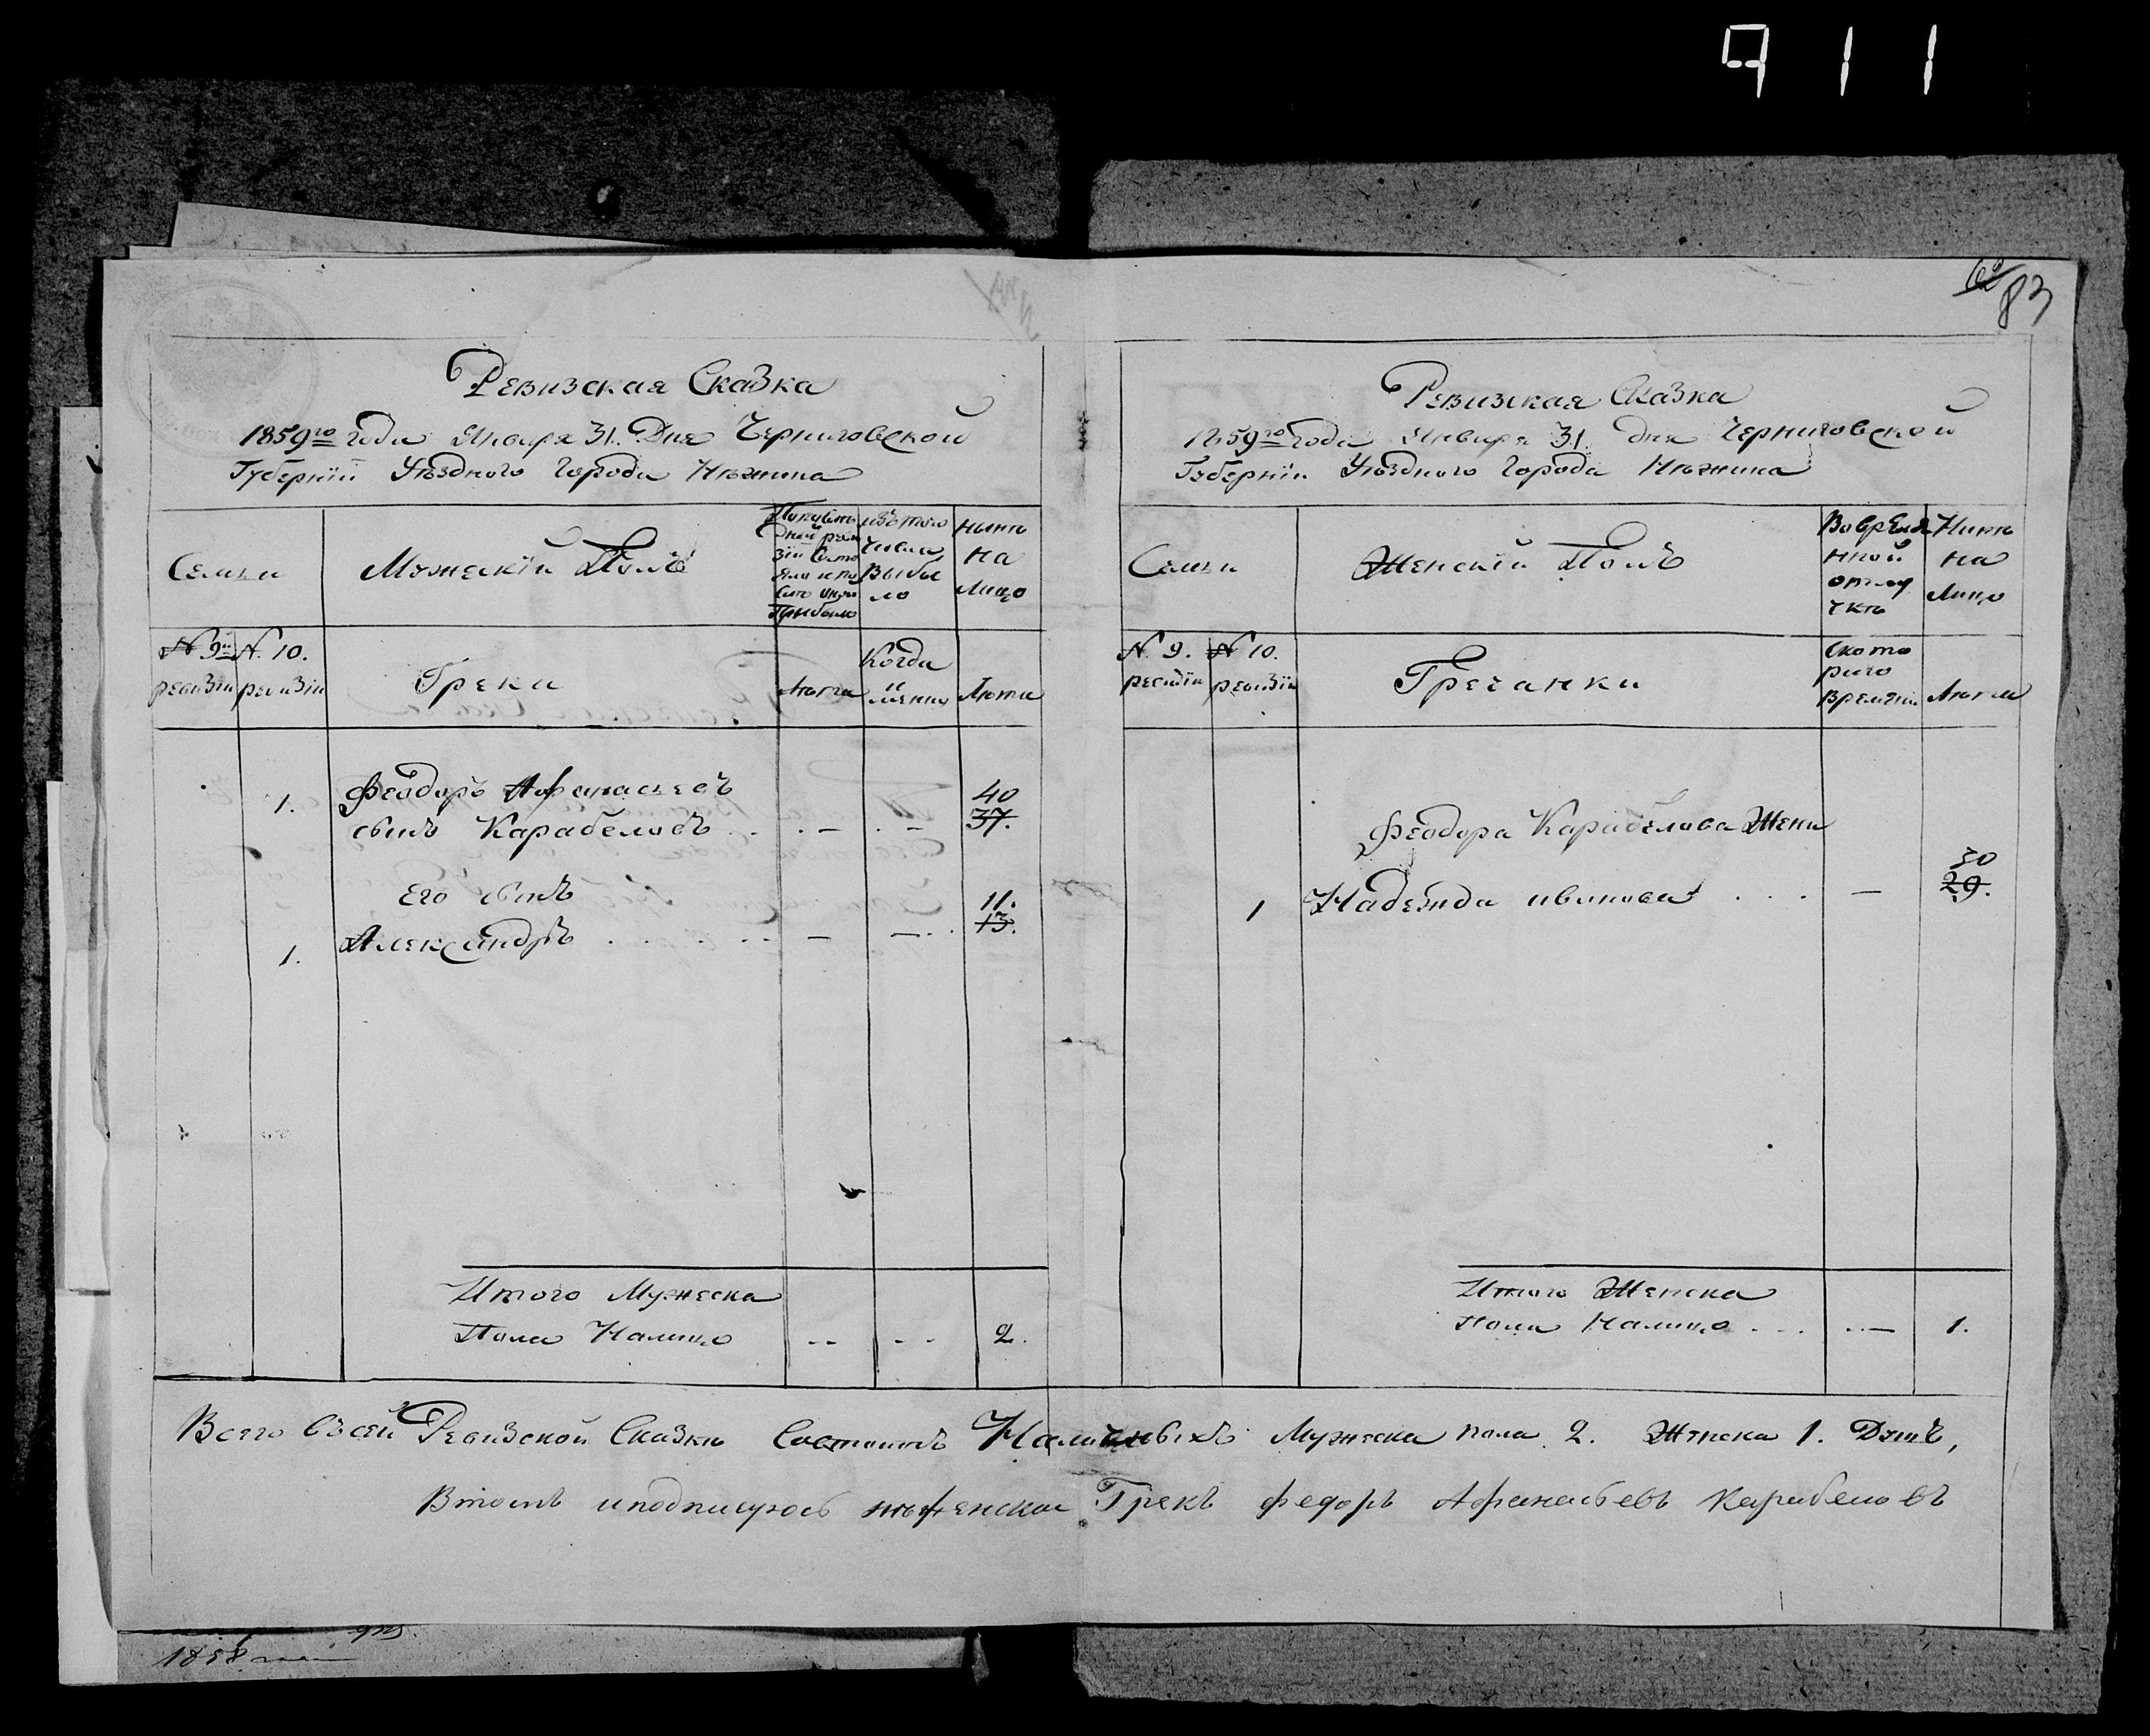 911
62
83
Ревизская Сказка
1859го года Января 31. Дня Черниговской
Губерніи Уѣзднаго Города Нѣжина
Семьи
Мужескій Полъ
изъ того
числа
выбы
ло
Нынѣ
на
Лицо
№ 9й
ревизіи
№ 10.
ревизіи
Греки
Лѣта
Когда
и
менно
Лѣта
1.
Феодоръ Афанасьевъ
40
сынъ Карабеловъ
37.
Его сынъ
11.
1.
Александръ
13.
Итого Мужеска
Пола Налицо
2.
Ревизская Сказка
1859го года Января 31 дня Черниговской
Губерніи Уѣзднаго Города Нѣжина
Семьи
Женскій Полъ
Во време
нной
отлу
чкѣ
Нынѣ
на
Лицо
№ 9.
ревизіи
№ 10.
ревизіи
Гречанки
Ското
раго
Времени
Лѣта
Феодора Карабелова Жена
30
1
Надежда иванова
29.
Итого Женска
пола Налицо
1.
Всего въ сей Ревизской Сказкѣ Состоитъ Наличныхъ Мужеска пола 2. Женска 1. Душъ,
Втомъ и подписуюсь Грекъ федоръ Афанасьевъ Карабеловъ
1858